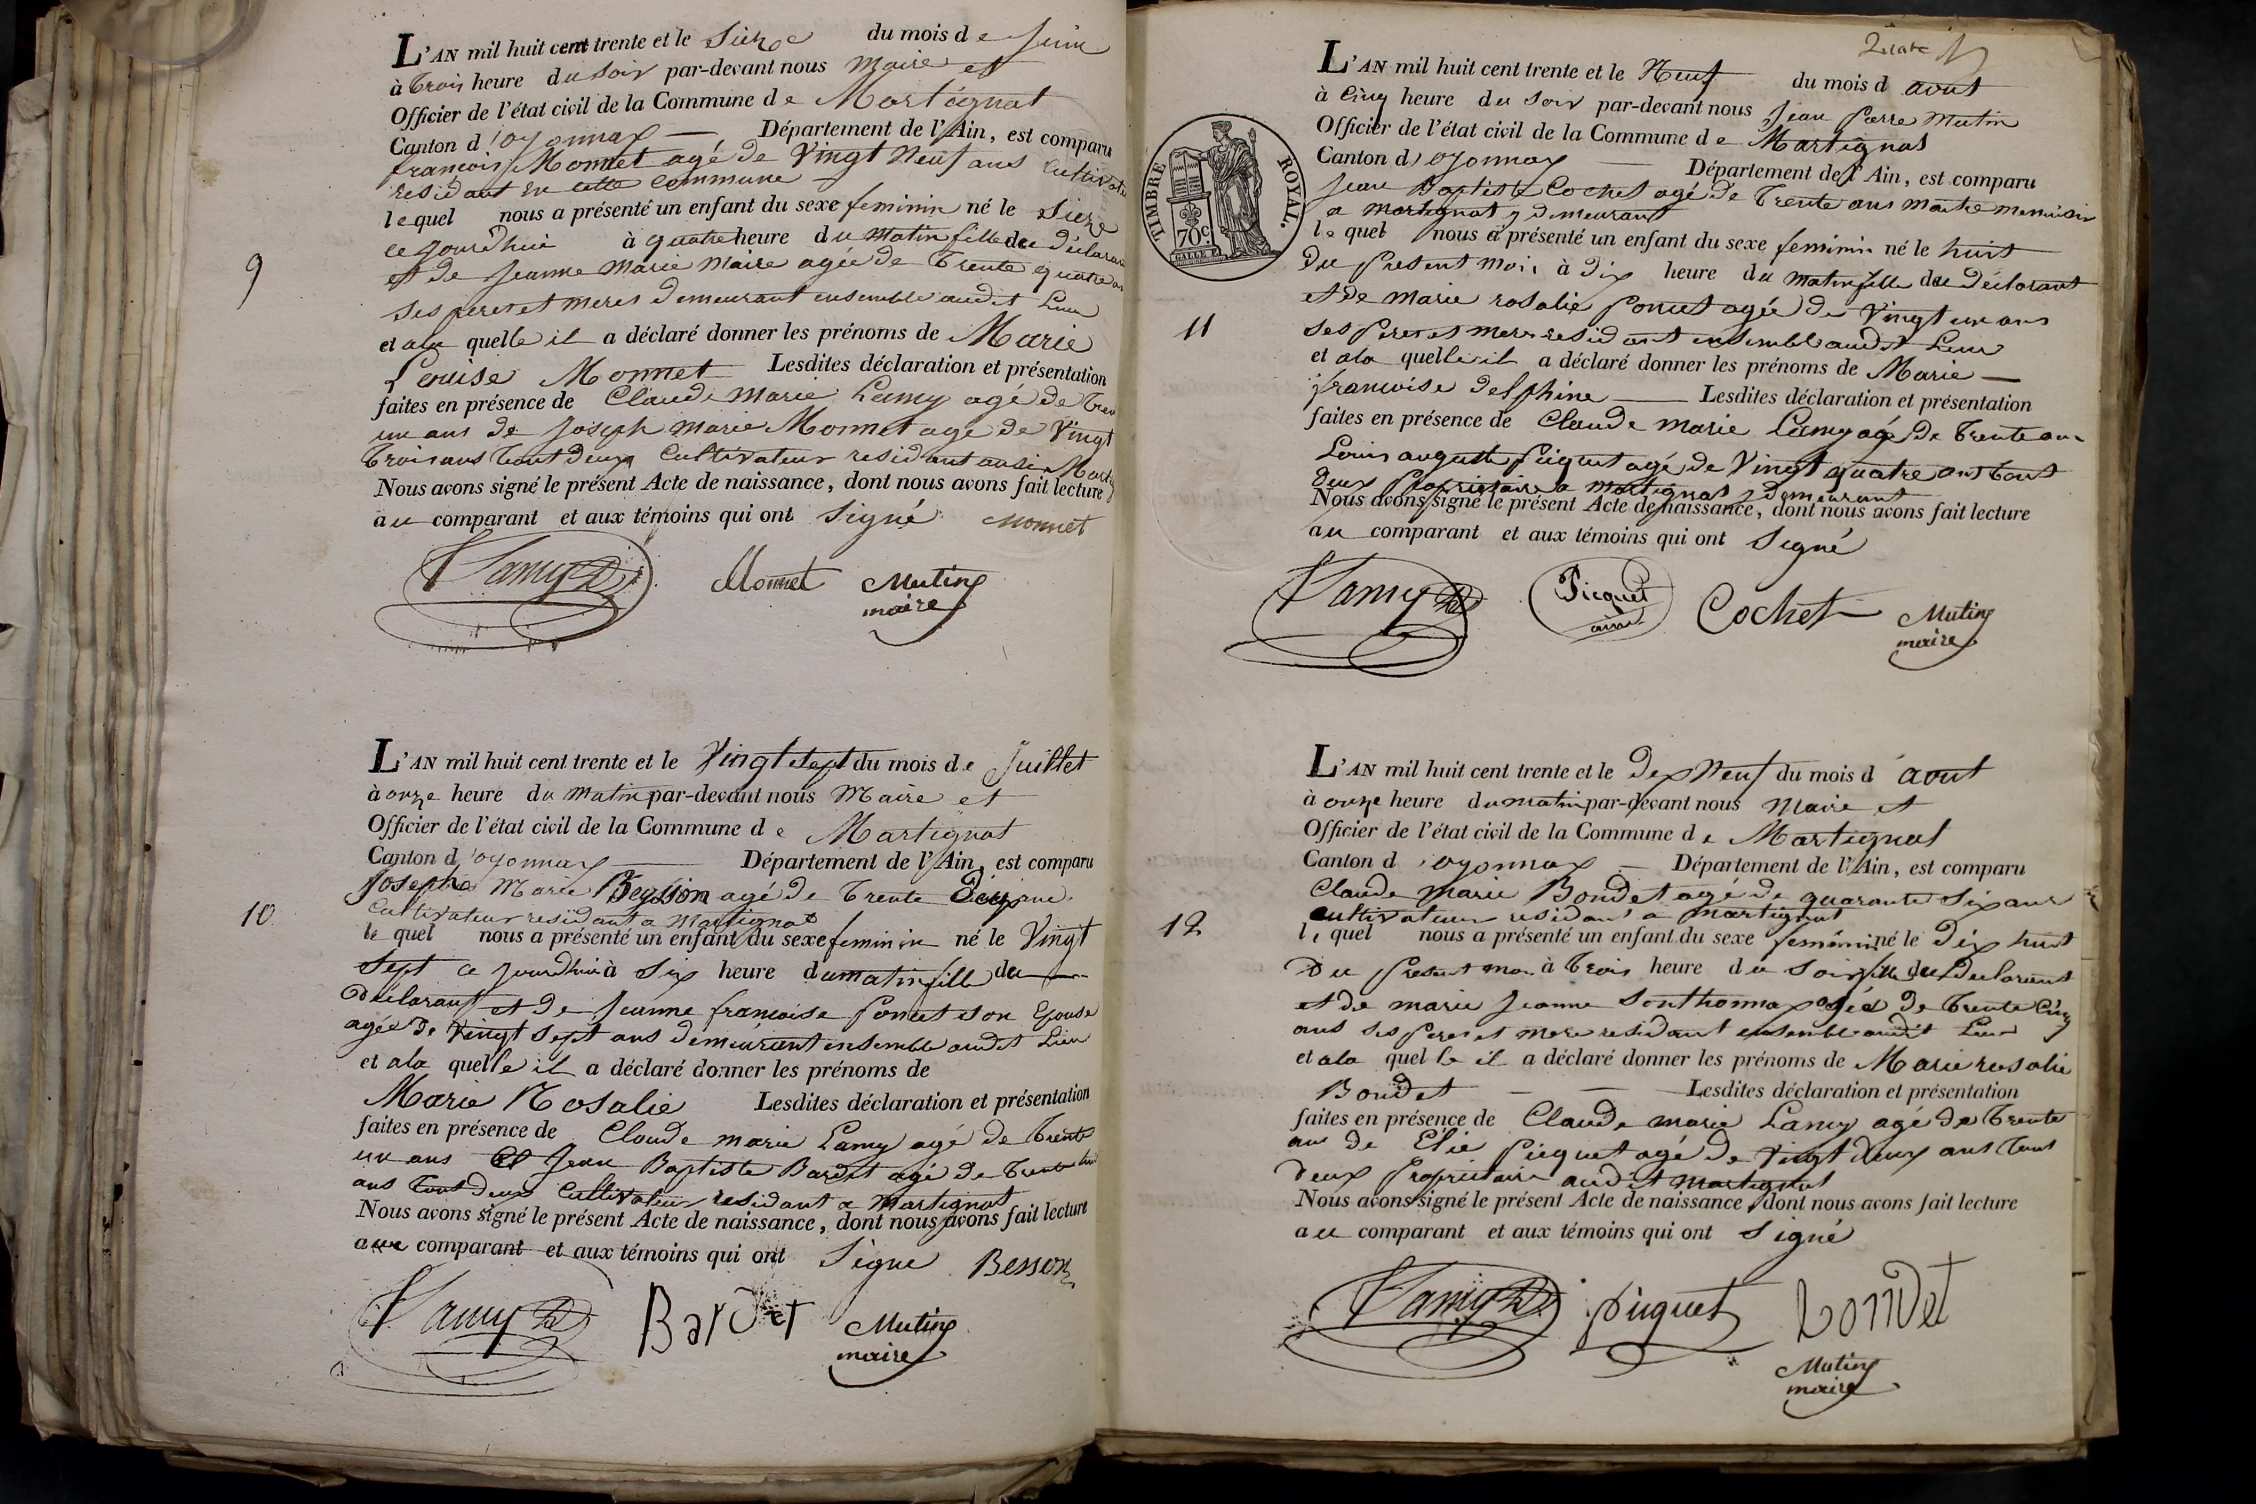 L'AN mil huit cent trente et le Sieze du mois de Juin
à trois heure du soir par-devant nous Maire et
Officier de l'état civil de la Commune de Martignat
Canton d'oyonnax — Département de l'Ain, est comparu
francois Monnet agé de Vingt Neuf ans Cultivateur
residant en cette commune
lequel nous a présenté un enfant du sexe feminin né le Sieze
ce jourd'hui à quatre heure du matin fille du déclarant
et de Jeanne Marie Maire agée de trente quatre ans
ses peres et meres demeurant ensemble audit Lieu
et a la quelle il a déclaré donner les prénoms de Marie
Louise Monnet Lesdites déclaration et présentation
faites en présence de Claude Marie Lamy agé de trente
un ans de Joseph Marie Monnet agé de Vingt
trois ans tout deux Cultivateur residant
Nous avons signé le présent Acte de naissance, dont nous avons fait lecture
au comparant et aux témoins qui ont Signé Monnet
Lamy Monnet Mutin
maire
9
L'AN mil huit cent trente et le Vingt sept du mois de Juillet
à onze heure du matin par-devant nous Maire et
Officier de l'état civil de la Commune de Martignat
Canton d'oyonnax — Département de l'Ain, est comparu
Joseph Marie Besson agé de trente
Cultivateur residant a Martignat
10
le quel nous a présenté un enfant du sexe feminin né le Vingt
sept ce jourdhui à six heure du matin fille du
déclarant et de Jeanne francoise Poncet son Epouse
agée de vingt sept ans demeurant ensemble audit Lieu
et a la quelle il a déclaré donner les prénoms de
Marie Rosalie Lesdites déclaration et présentation
faites en présence de Claude marie Lamy agé de trente
un ans et Jean Baptiste Bardet agé de trente
ans tout deux Cultivateur residant a Martignat
Nous avons signé le présent Acte de naissance, dont nous avons fait lecture
au comparant et aux témoins qui ont Signe Besson
Lamy Bardet Mutin
maire
TIMBRE ROYAL.
70 c.
L'AN mil huit cent trente et le Neuf du mois d aout
à Cinq heure du soir par-devant nous Jean Pierre Mutin
Officier de l'état civil de la Commune de Martignat
Canton d'oyonnax — Département de l'Ain, est comparu
Jean Baptiste Cochet agé de Trente ans maitre menuisier
a martignat y demeurant
le quel nous a présenté un enfant du sexe feminin né le huit
du present mois à dix heure du matin fille du déclarant
et de marie rosalie Poncet agée de Vingt un ans
11
ses peres et meres residant ensemble audit Lieu
et a la quelle il a déclaré donner les prénoms de Marie —
francoise delphine — Lesdites déclaration et présentation
faites en présence de Claude marie Lamy agé de trente ans
Louis auguste Picquet agé de Vingt quatre ans tout
deux proprietaire a martignat y demeurant
Nous avons signé le présent Acte de naissance, dont nous avons fait lecture
au comparant et aux témoins qui ont Signé
Lamy Picquet Cochet Mutin
maire
L'AN mil huit cent trente et le Dix Neuf du mois d'aout
à onze heure du matin par-devant nous Maire et
Officier de l'état civil de la Commune de Martignat
Canton d'oyonnax — Département de l'Ain, est comparu
Claude Marie Bondet agé de quarante Six ans
cultivateur residant a martignat
12
le quel nous a présenté un enfant du sexe feminin né le Dix huit
Du present mois à trois heure du soir fille du Declarant
et de marie Jeanne Sonthonnax agée de trente cinq
ans ses peres et mere residant ensemble audit Lieu
et a la quelle il a déclaré donner les prénoms de Marie rosalie
Bondet — Lesdites déclaration et présentation
faites en présence de Claude marie Lamy agé de trente
ans de Elie Picquet agé de vingt deux ans tout
deux Proprietaire audit Martignat
Nous avons signé le présent Acte de naissance, dont nous avons fait lecture
au comparant et aux témoins qui ont Signé
Lamy Picquet Bondet
Mutin
maire